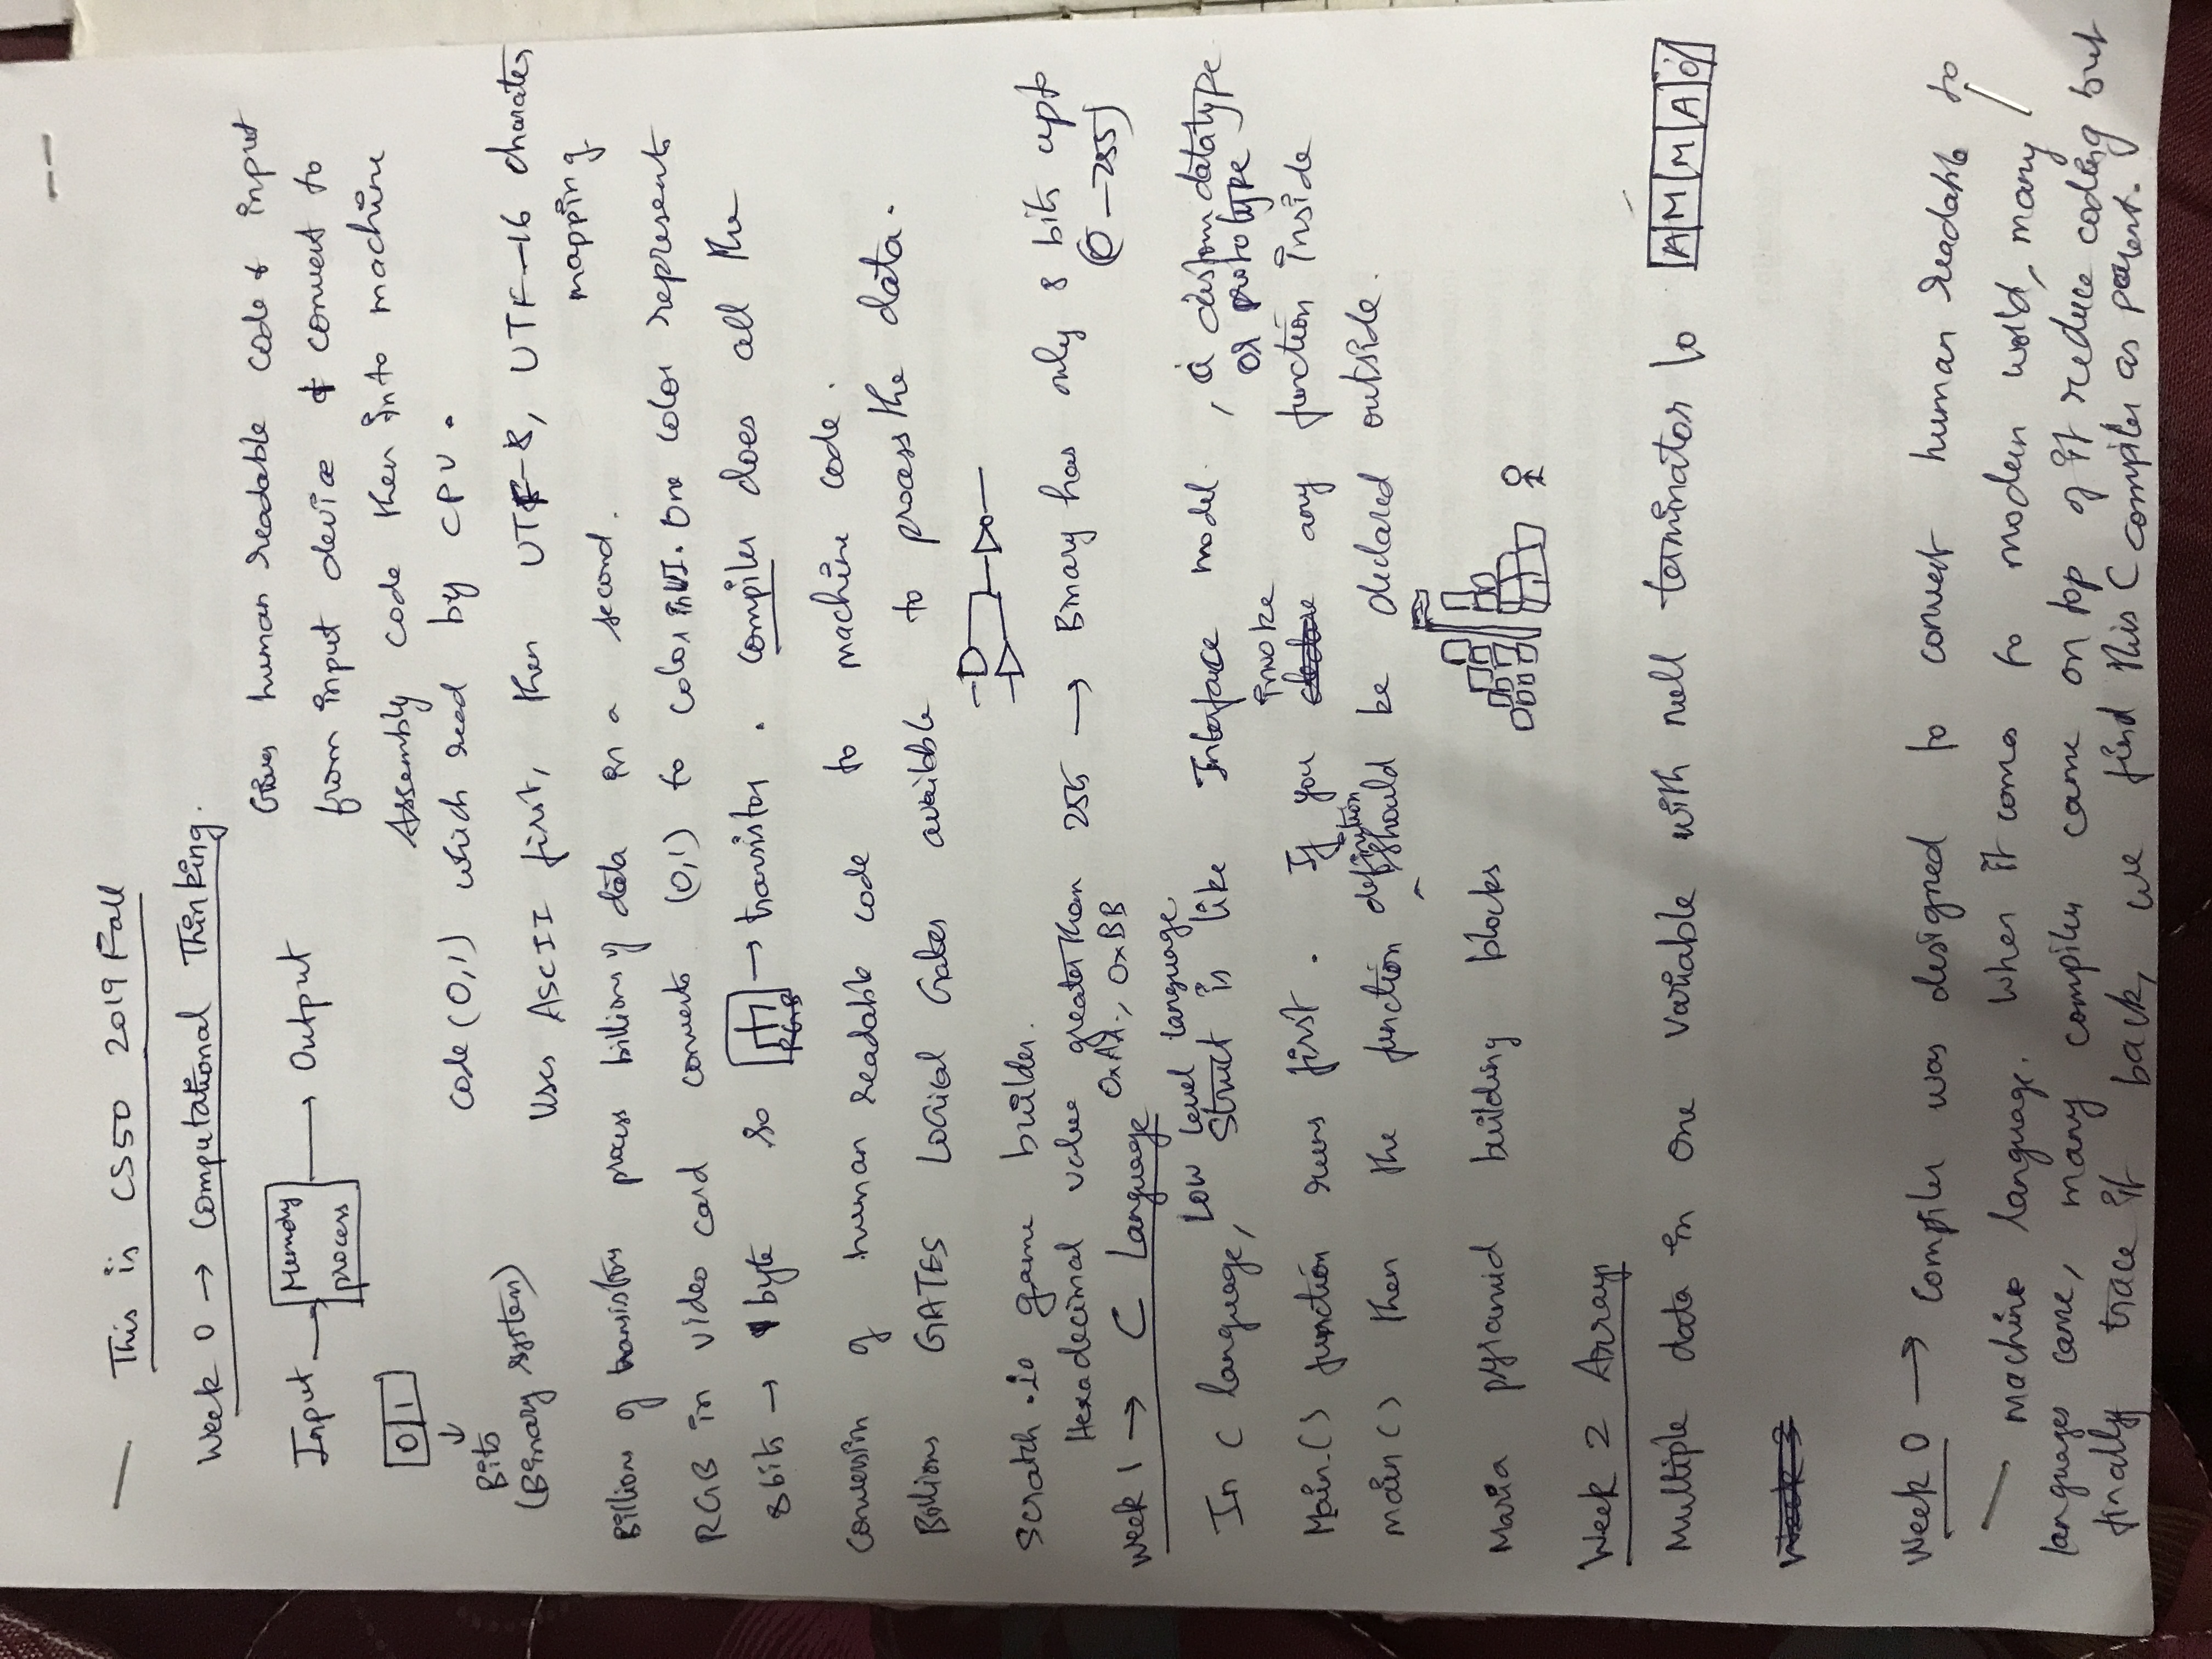 This is CS50 2019 Fall
Week 0 → Computational Thinking.
Input → Memory process → Output
0 1
Bits
(Binary system)
Gives human readable code & input
from input device & convert to
Assembly code then into machine
code (0,1) which read by CPU.
Uses ASCII first, then UTF-8, UTF-16 charates
mapping
Billions of transistors process billions of data in a second.
RGB in video card converts (0,1) to color in UI. One color represents
8 bits → 1 byte so RGB → transistor. compiler does all the
conversion of human readable code to machine code.
Billions GATES Logical Gates availble to process the data.
Scratch.io game builder.
Hexadecimal value greater than 255 → Binary has only 8 bits upto
(0-255)
0xAA., 0xBB
Week 1 → C Language
Low level language
In C language, Struct is like Interface model, a custom datatype
or prototype
Main() function runs first. If you declare invoke any function inside
main() then the function definition should be declared outside.
Maria pyramid building blocks
Week 2 Arrays
Multiple data in one variable with null terminator \o A M M A \0
Week 3
Week 0 → Compiler was designed to convert human readable to
machine language. When it comes to modern world, many
languages came, many compilers came on top of it reduce coding but
finally trace it back, we find this C compiler as parent.